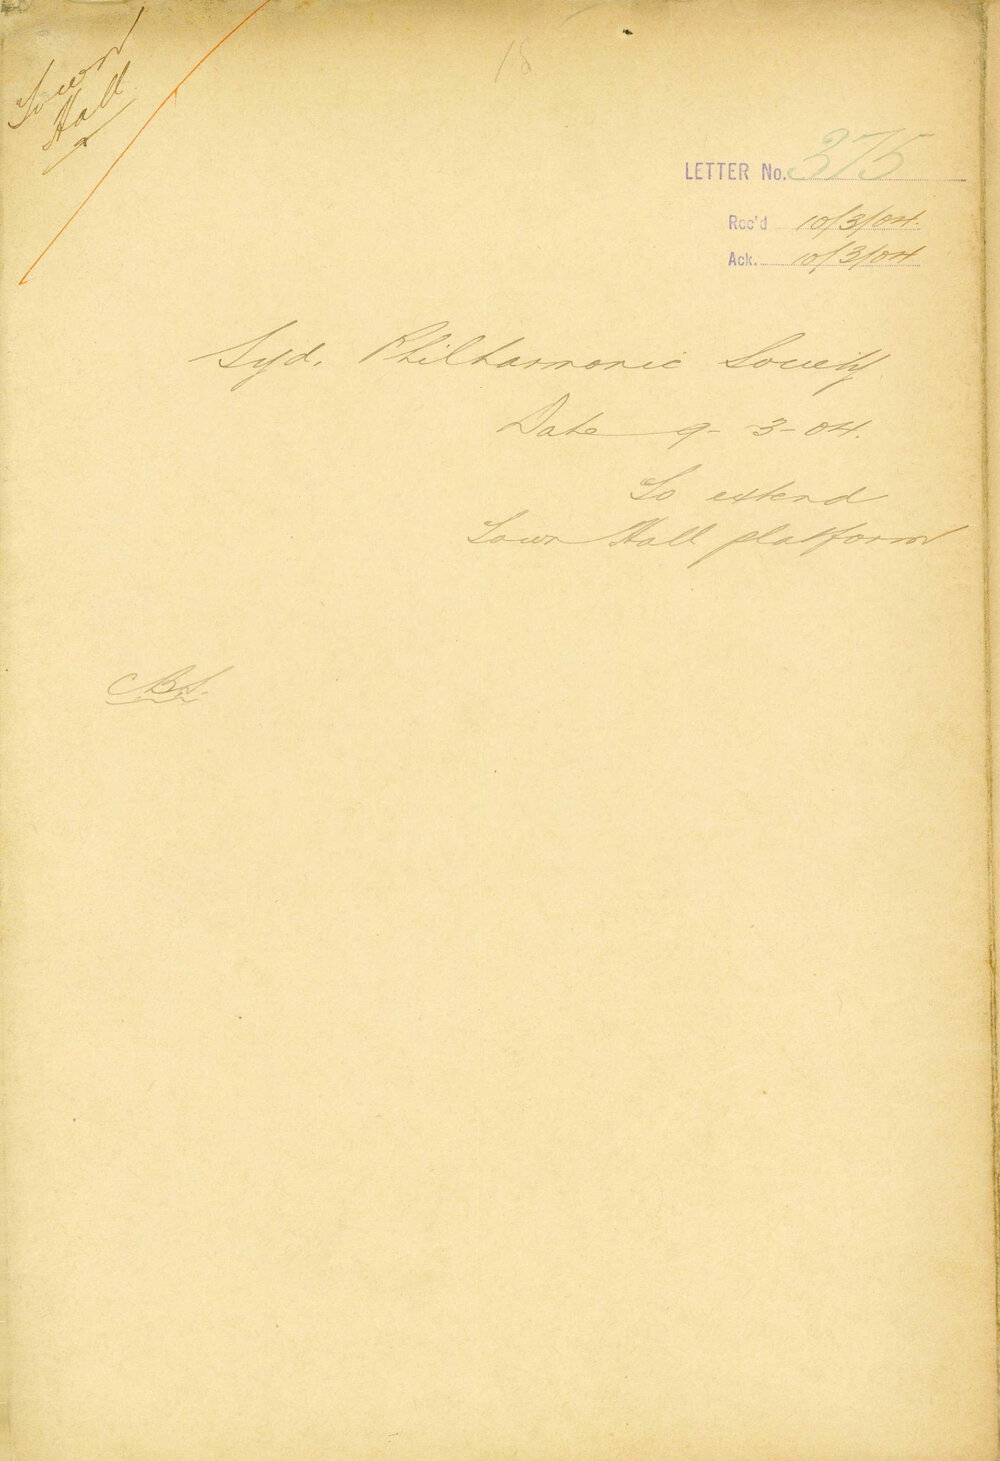 Town
Hall
18
LETTER No. 375
Rec'd 10/3/04.
Ack. 10/3/04
Syd. Philharmonic Society
Date 9-3-04.
To extend
Town Hall platform